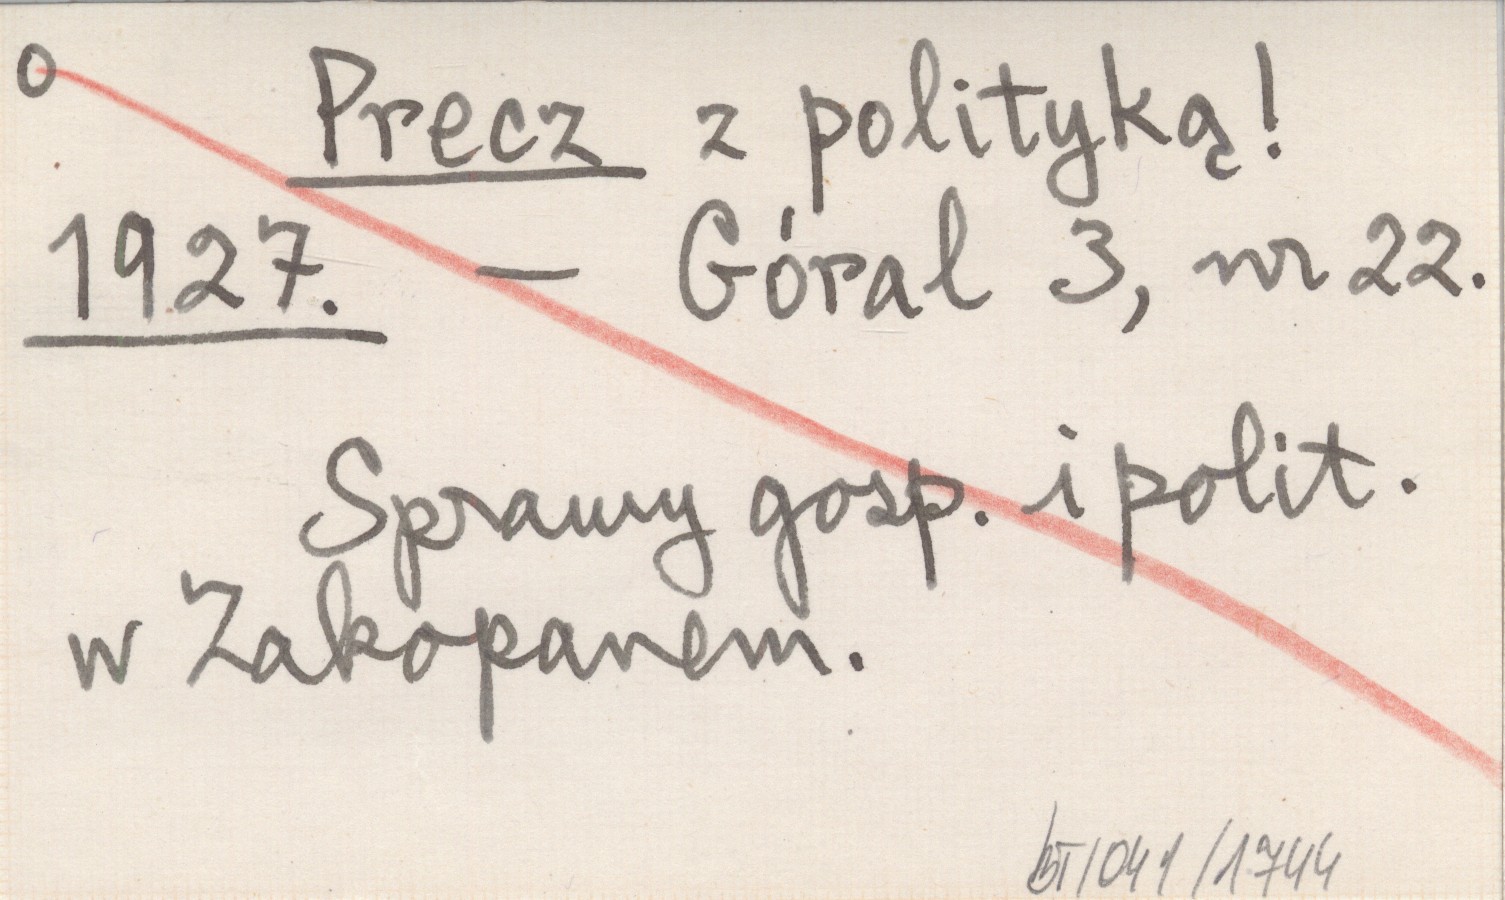 o
Precz z polityką!
1927. — Góral 3, nr 22.
Sprawy gosp. i polit.
w Zakopanem.
BT/041/1744